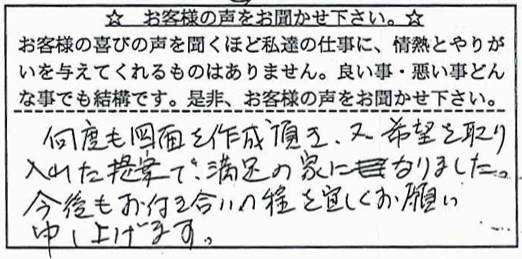 ☆ お客様の声をお聞かせ下さい。☆
お客様の喜びの声を聞くほど私達の仕事に、情熱とやりが
いを与えてくれるものはありません。良い事・悪い事どん
な事でも結構です。是非、お客様の声をお聞かせ下さい。
何度も図面を作成頂き、又希望を取り
入れた提案で満足の家になりました。
今後もお付き合いの程を宜しくお願い
申し上げます。